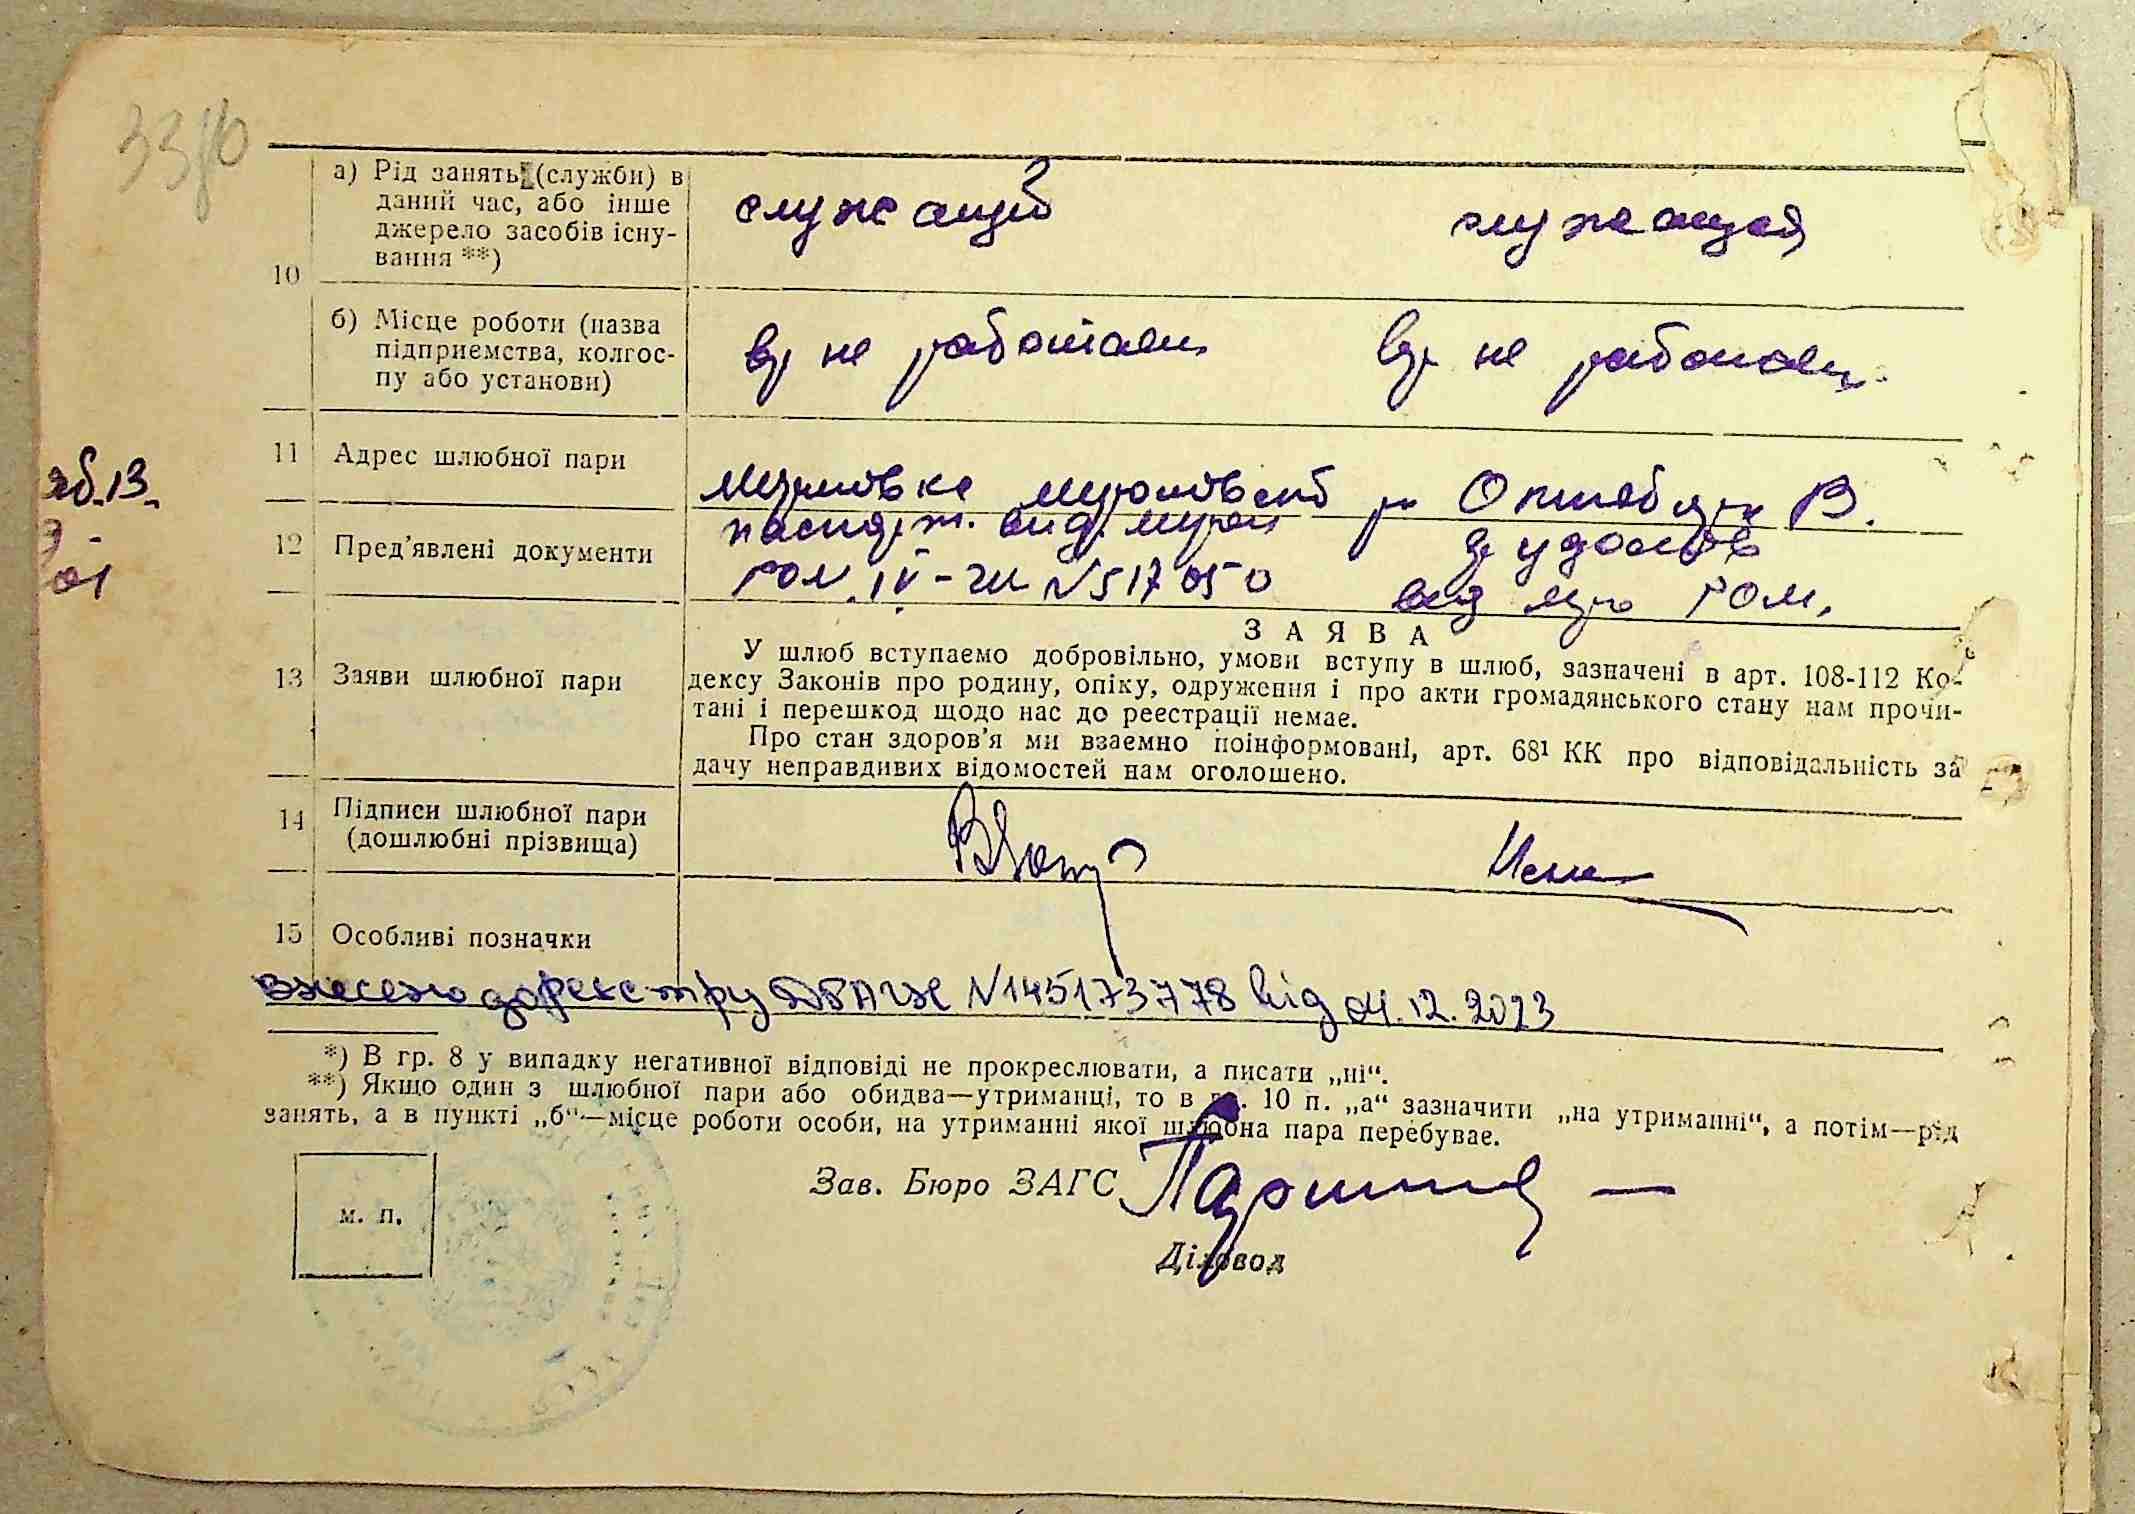 33
10
а) Рід занять (служби) в
даний час, або інше
джерело засобів існу-
вання **)
служащий
служащая
б) Місце роботи (назва
підприємства, колгос-
пу або установи)
не работает
не работает
11 Адрес шлюбної пари
12 Пред’явлені документи
вид.
IV-
N 517050
РОМ.
13 Заяви шлюбної пари
ЗАЯВА
У шлюб вступаємо добровільно, умови вступу в шлюб, зазначені в арт. 108-112 Ко-
дексу Законів про родину, опіку, одруження і про акти громадянського стану нам прочи-
тані і перешкод щодо нас до реєстрації немає.
Про стан здоров’я ми взаємно поінформовані, арт. 68¹ КК про відповідальність за
дачу неправдивих відомостей нам оголошено.
14 Підписи шлюбної пари
(дошлюбні прізвища)
15 Особливі позначки
внесено до реєстру ДРАЦС N 145173778 від 04.12.2023
*) В гр. 8 у випадку негативної відповіді не прокреслювати, а писати „ні“.
**) Якщо один з шлюбної пари або обидва—утриманці, то в гр. 10 п. „а“ зазначити „на утриманні“, а потім—рід
занять, а в пункті „б“—місце роботи особи, на утриманні якої шлюбна пара перебуває.
Зав. Бюро ЗАГС
м. п.
Діловод